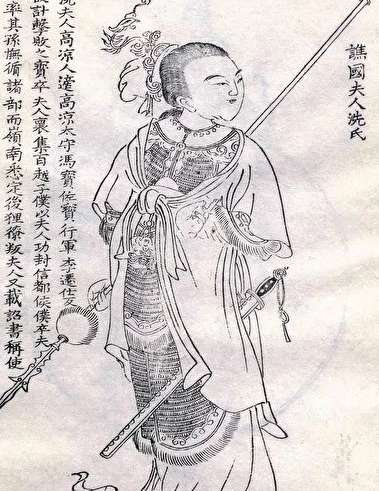 譙國夫人洗氏
洗夫人高涼人適高涼太守馮寶佐寶行軍李遷仕反
設計擊敗之寶卒夫人褱集百越子僕以夫人功封信都侯僕卒夫人
率其孫撫循諸部而嶺南悉定後狸獠叛夫人又載詔書稱使